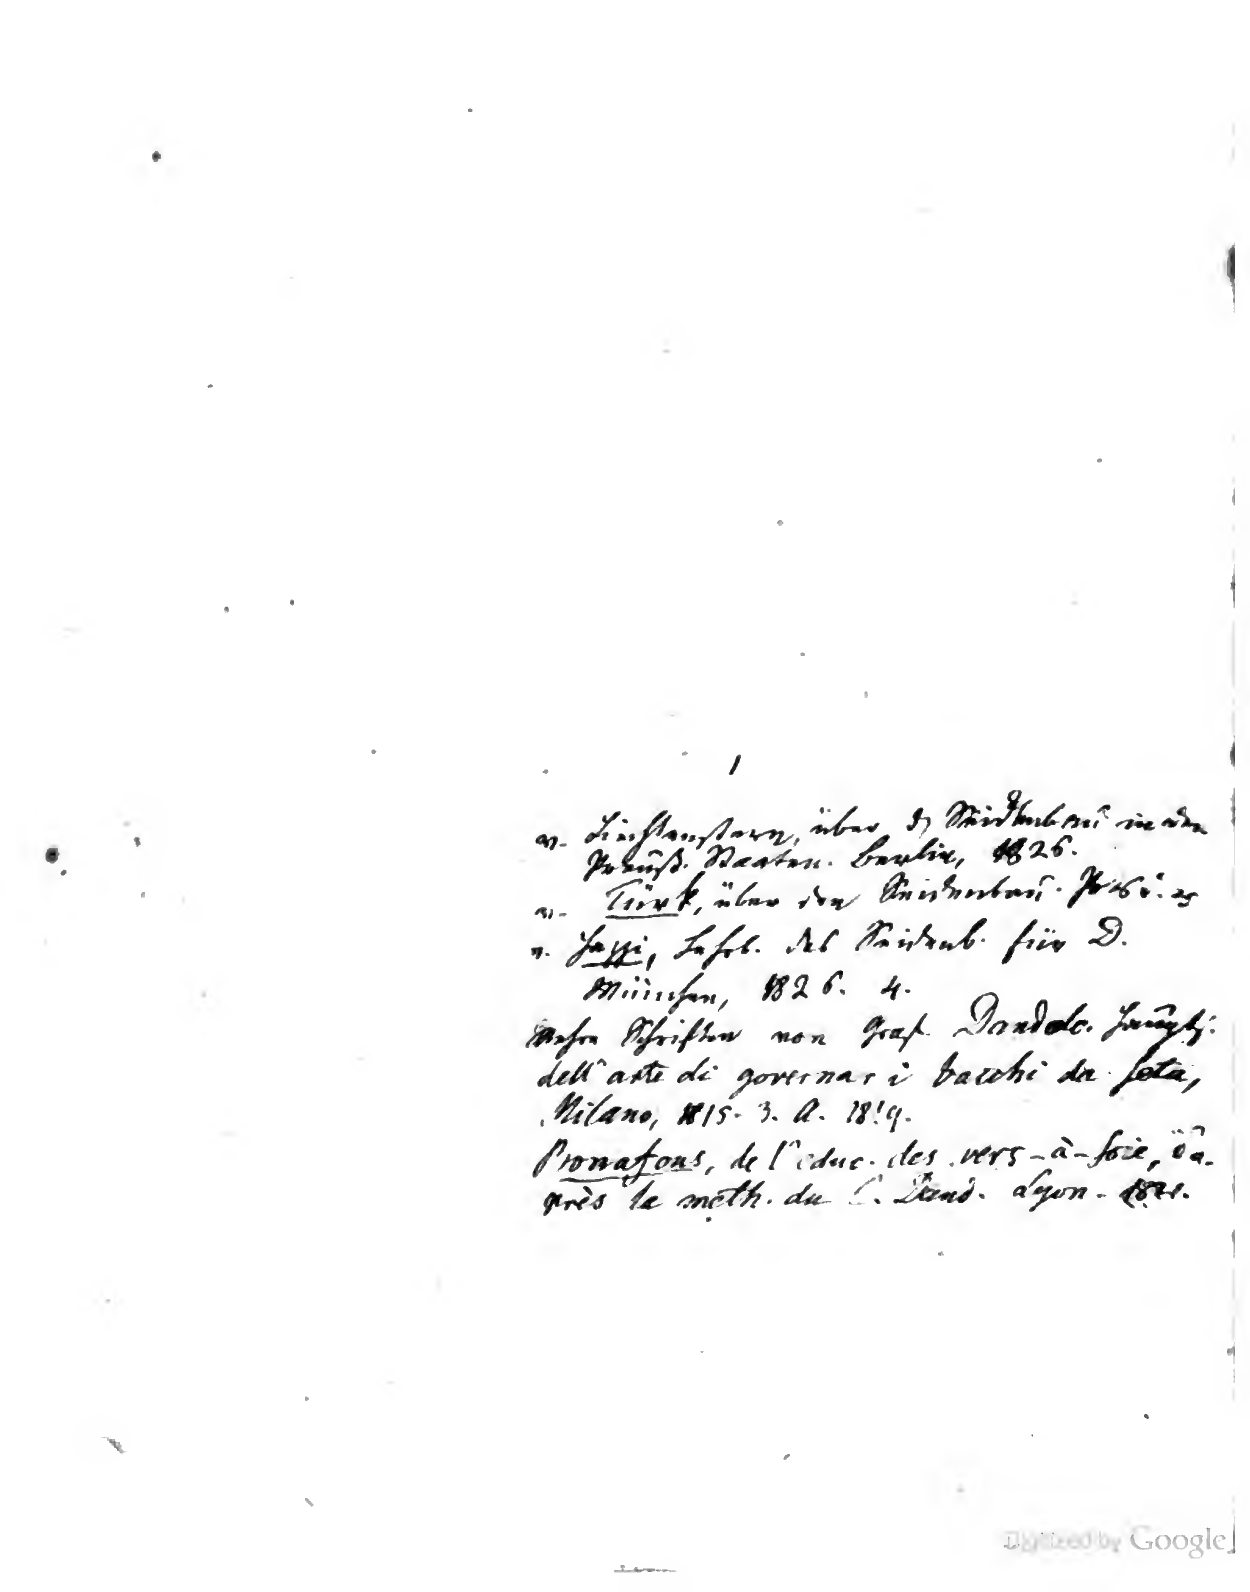 v. Liechtenstern, über d Seidenbau in den
Preuß. Staaten. Berlin, 1826.
v. Türk, über den Seidenbau.
v. Hazzi, Lehrb. des Seidenb. für D.
München, 1826. 4.
Mehre Schriften von Graf Dandolo. Hauptf:
dell'arte di governar i bacchi da seta,
Milano, 1815. 3. A. 1819.
Bonafous, de l'educ. des vers-à-soie, d'a-
près la méth. du C. Dand. Lyon. 1821.
Digitized by Google